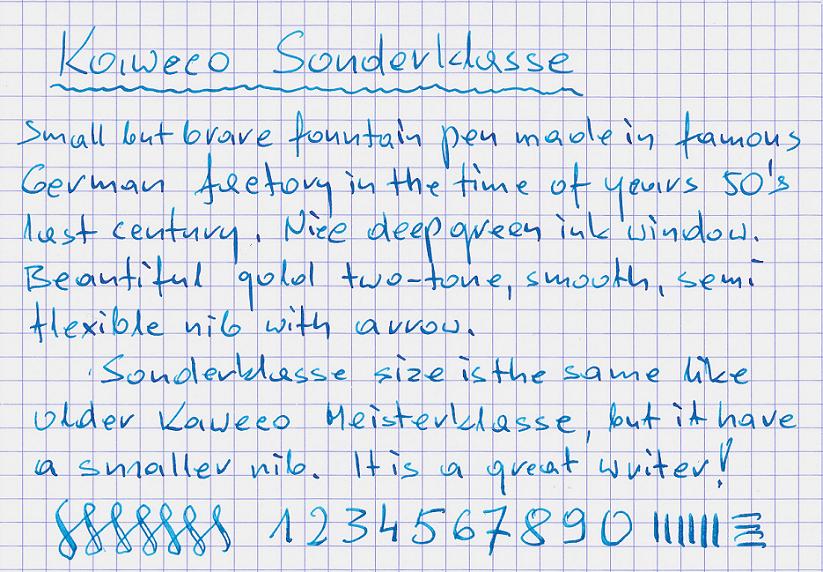 Kaweco Sonderklasse
Small but brave fountain pen made in famous
German factory in the time of years 50's
last century. Nice deep green ink window.
Beautiful gold two-tone, smooth, semi
flexible nib with arrow.
Sonderklasse size is the same like
older Kaweco Meisterklasse, but it have
a smaller nib. It is a great writer!
1 2 3 4 5 6 7 8 9 0